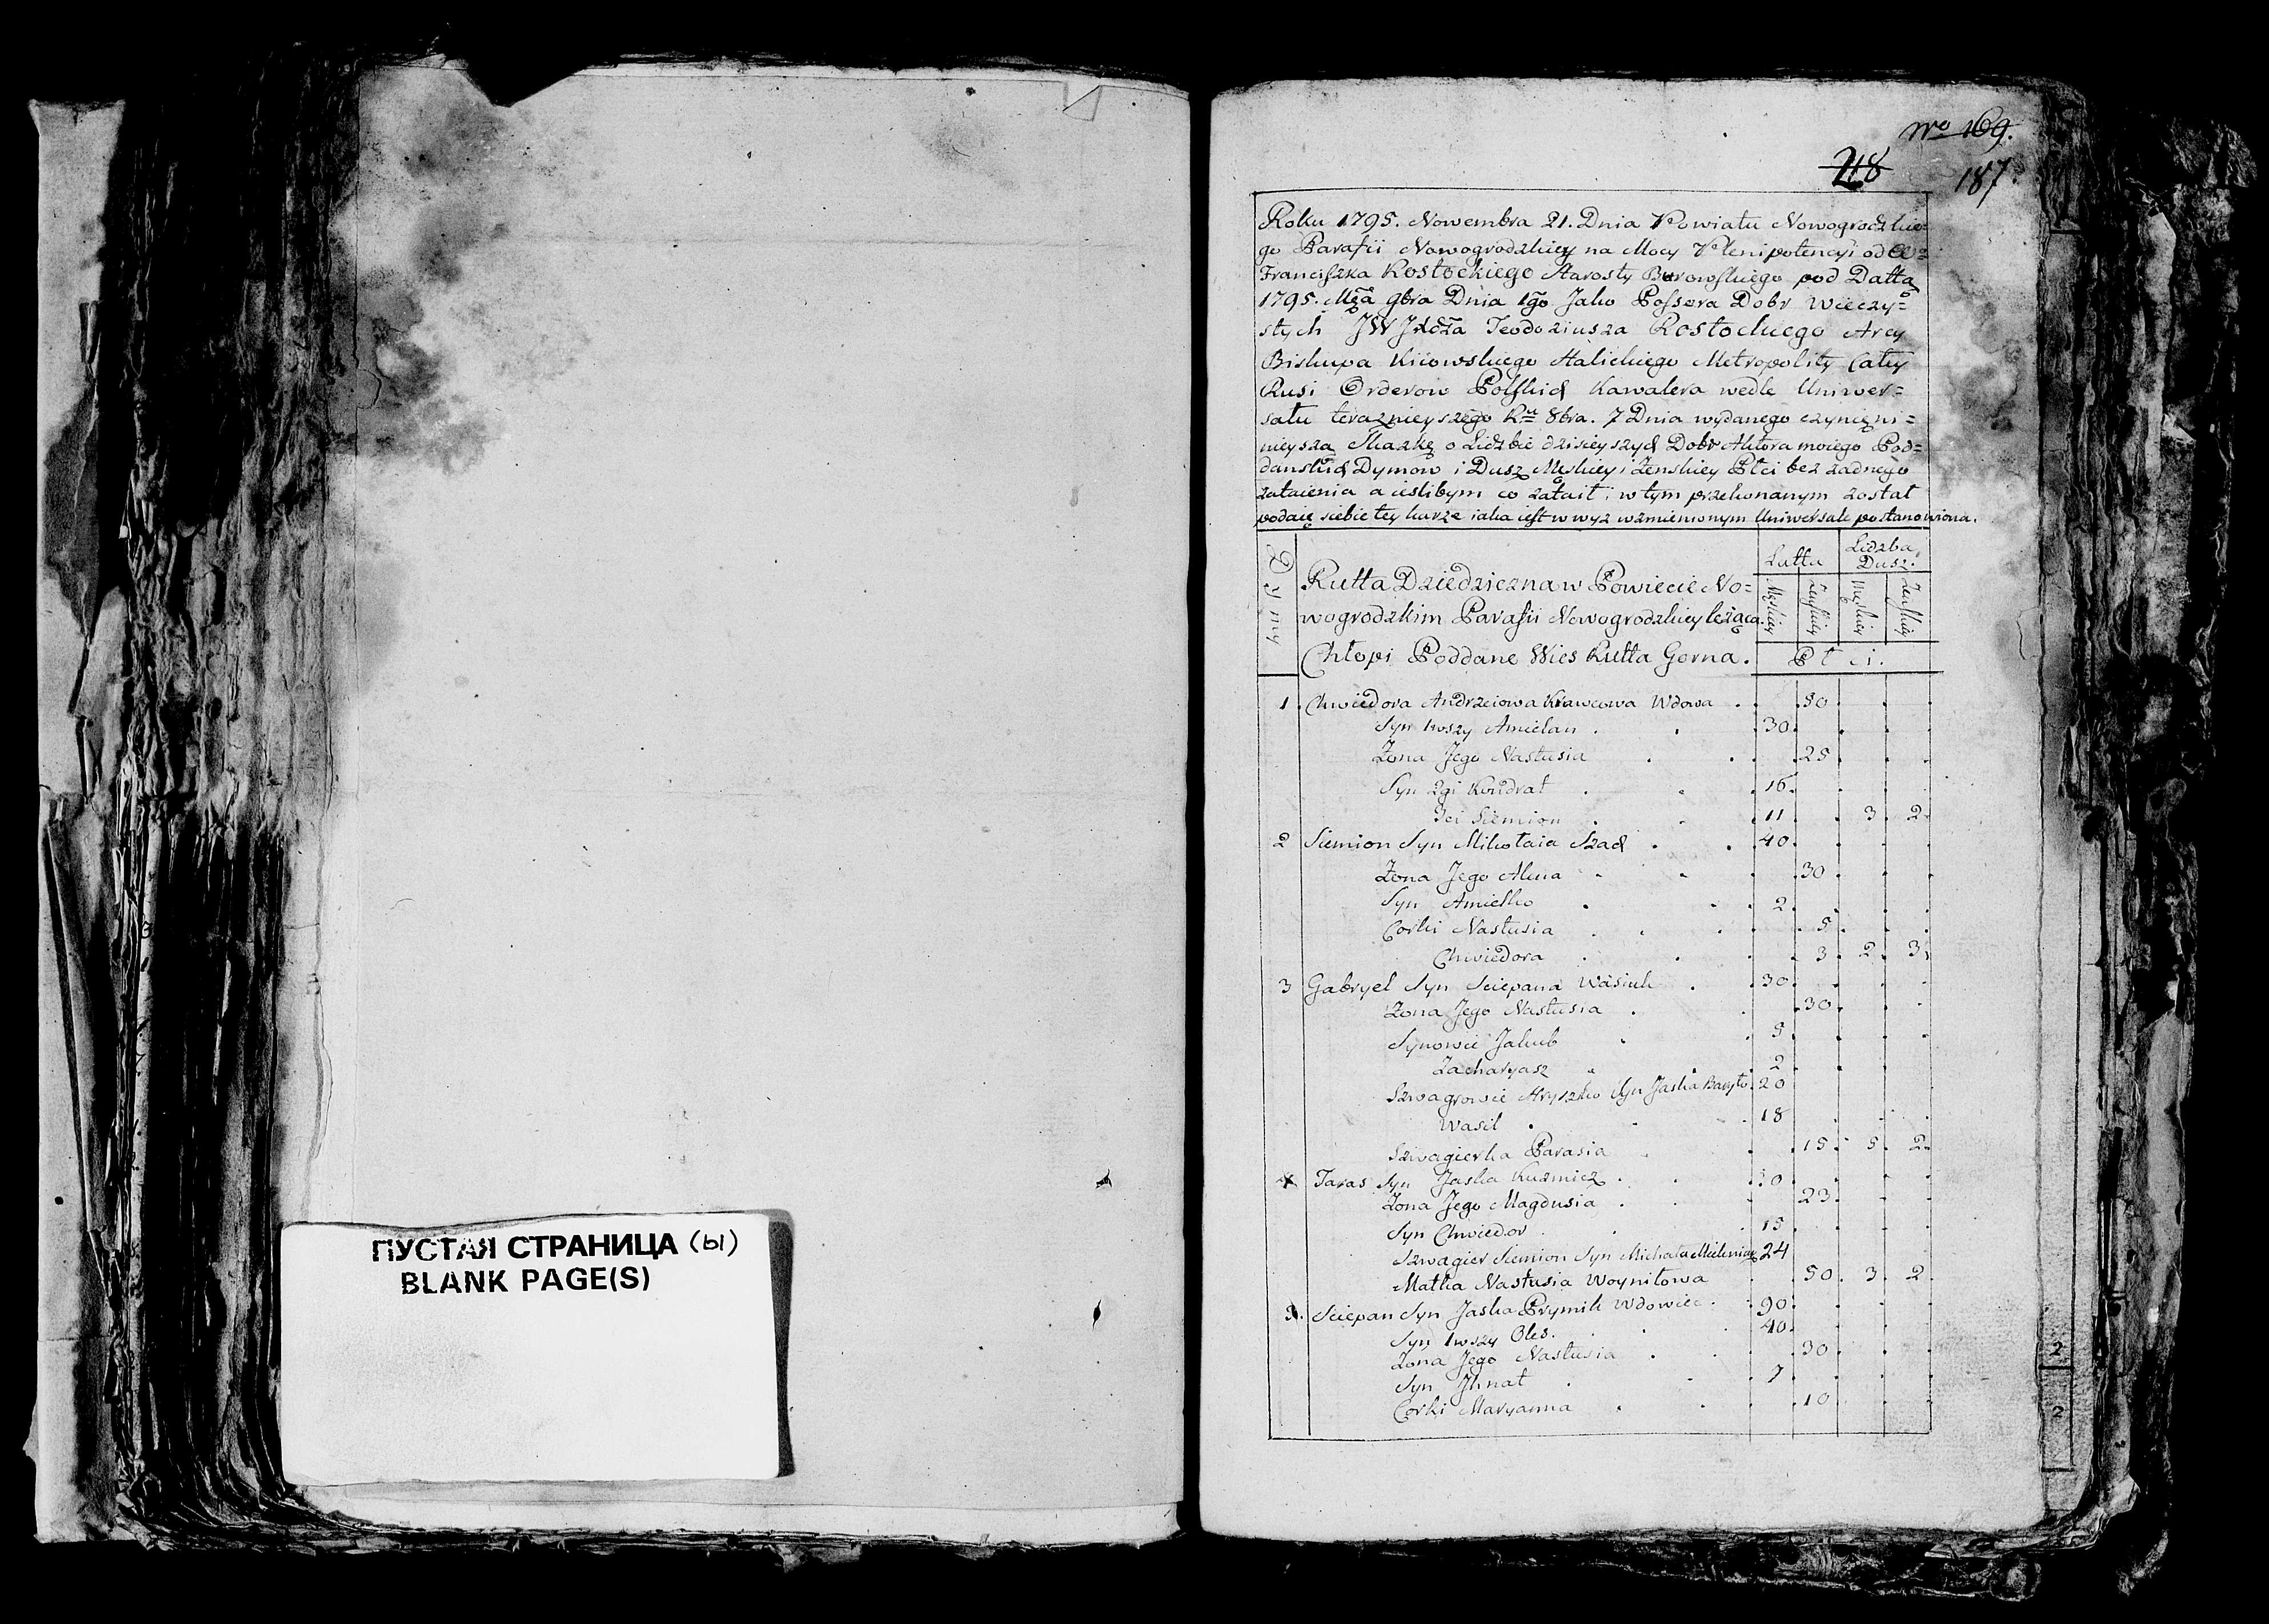 No 169.
218 187.
Roku 1795. Nowembra 21. Dnia Powiatu Nowogrodzkie=
go Parafii Nowogrodzkiey na Mocy Plenipotencyi od
Franciszka Rostockiego Starosty pod Dattą
1795. Mca 9bra Dnia 1go Jako Possora Dobr Wieczy=
stych JW Jxdza Teodoziusza Rostockiego Arcy
Biskupa Kiiowskiego Halickiego Metropolity Całey
Rusi Orderow Polskich Kawalera wedle Uniwer=
sału teraznieyszego Ru 8bra. 7 Dnia wydanego czynię ni=
nieyszą Skazkę o Lidzbie dzisieyszych Dobr Aktora moiego Pod=
danskich Dymow i Dusz Męskiey i Zenskiey Płci bez zadnego
zataienia a ieslibym co zataił i w tym przekonanym został
podaię siebie tey karze iaka iest w wyz wzmienionym Uniwersale postanowiona.
Dymy
Rutta Dziedziczna w Powiecie No=
wogrodzkim Parafii Nowogrodzkiey leżąca.
Chłopi Poddane Wies Rutta Gorna.
Latta Lidzba Dusz.
Męskiey Zenskiey Męskiey Zenskiey
Płci.
1 Chwiedora Andrzeiowa Krawcowa Wdowa . 50
Syn 1wszy Amielan . 30
Zona Jego Nastusia . 25
Syn 2gi Kondrat . 16
3ci Siemion . 11 3 2
2 Siemion Syn Mikołaia Szach . 40
Zona Jego Alena . 30
Syn Amielko . 2
Corki Nastusia . 5
Chwiedora . 3 2 3
3 Gabryel Syn Sciepana Wasiuk . 30
Zona Jego Nastusia . 30
Synowie Jakub . 5
Zacharyasz . 2
Szwagrowie Hryszko Syn Jaśka 20
Wasil . 18
Szwagierka Parasia 15 5 2
4 Taras Syn Jaśka Kuzmicz . 50
Zona Jego Magdusia . 23
Syn Chwiedor . 15
Szwagier Siemion Syn Michała 24
Matka Nastusia Woyniłowa 50 3 2
5. Sciepan Syn Jaśka Prymik Wdowiec . 90
Syn 1wszy Oles. 40
Zona Jego Nastusia . 30
Syn Jhnat . 7
Corki Maryanna . 10
ПУСТАЯ СТРАНИЦА (ы)
BLANK PAGE(S)
2
2